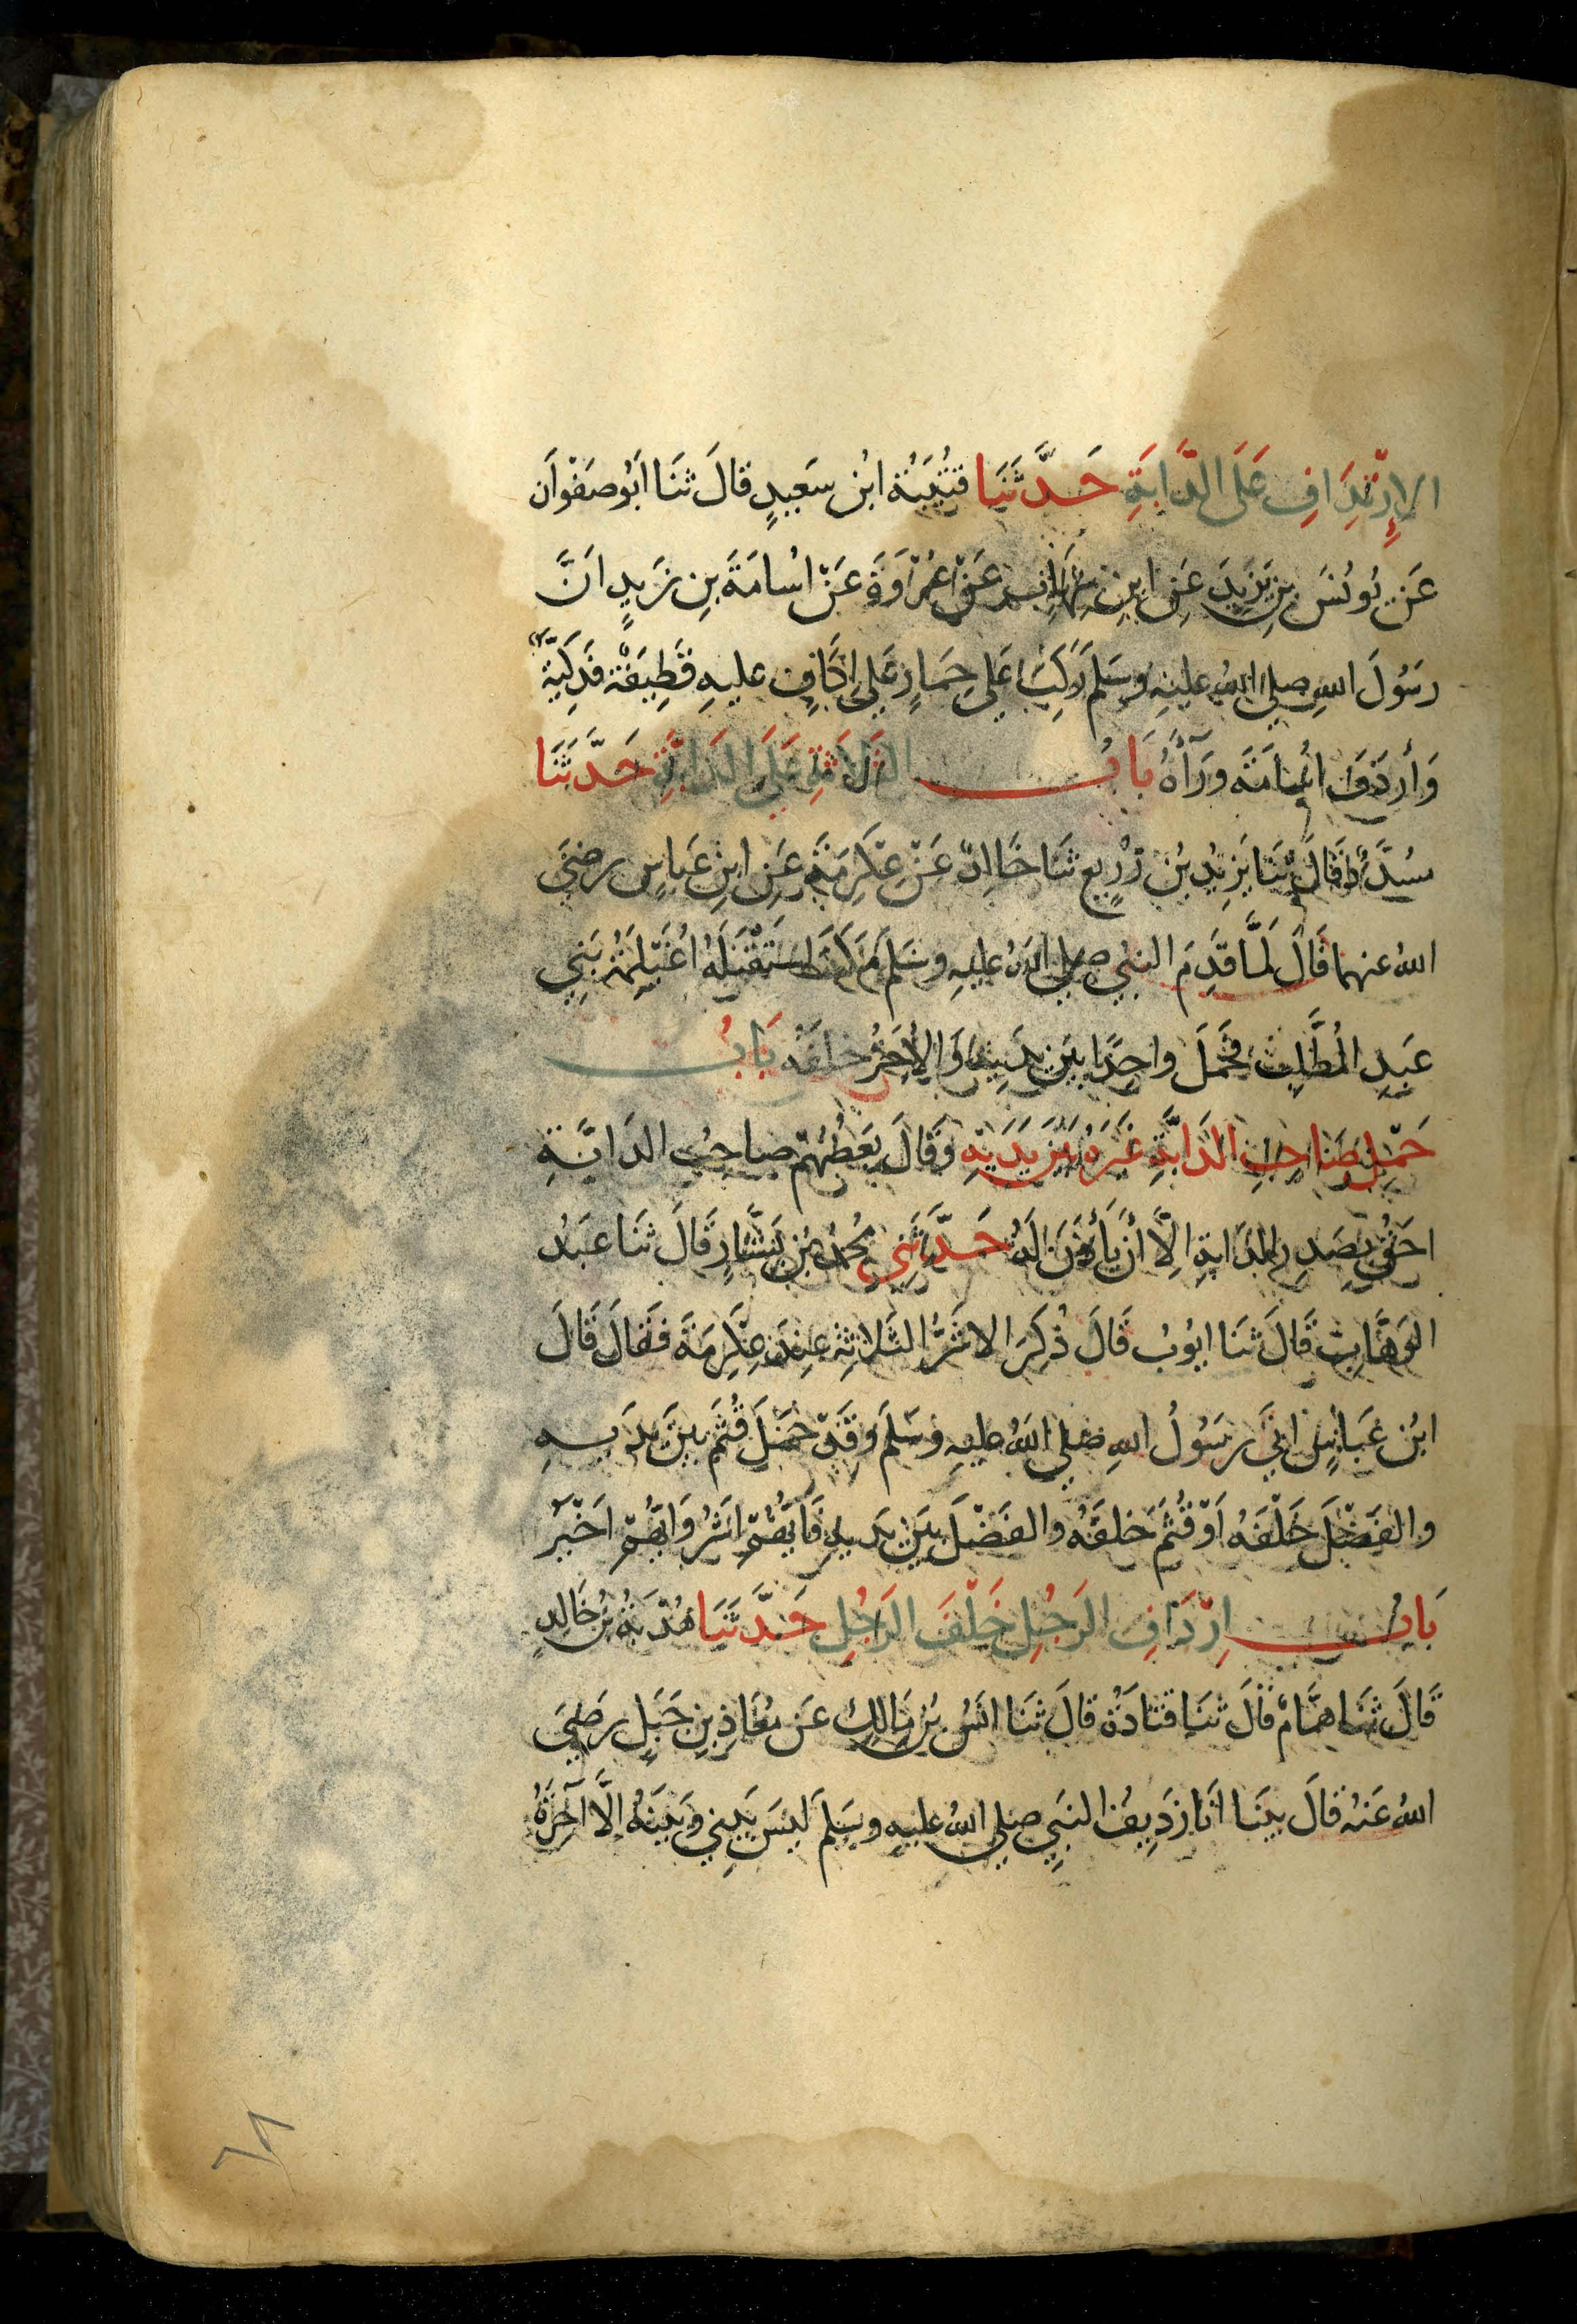 الإِرْتِدَافِ عَلَى الدَّابَةِ حَدَّثَنَا قُتَيْبَةُ ابْن سَعِيدٍ قَالَ ثَنَا اَبُو صَفْوَان
عَن يُونُسَ بنِ يَزِيدَ عَنِ ابنِ شِهَابٍ عَنْ عُرْوَةَ عَنْ اُسَامَةَ بنِ زَيدٍ اَنَّ
رَسُولَ اللهِ صلى اللهُ عليهِ وسَلمَ رَكِبَ عَلى حِمَارٍ عَلَى اِكَافٍ عليهِ قَطِيفَةٌ فَدَكِيَّةٌ
وَأردَفَ اُسَامَةَ ورَآءَهُ بَابُ الثَلَاثَةِ عَلَى الدَابَّةِ حَدَّثَنَا
مُسَدَّدٌ قَالَ ثَنَا يَزِيدُ بنُ زُرَيعٍ ثَنَا خَالِدٌ عَنْ عِكْرِمَةَ عَنِ ابنِ عَبَاسٍ رضيَ
اللهُ عنهما قَالَ لَمَّا قَدِمَ النبي صلى اللهُ عليهِ وسَلمَ مَكَّةَ اسْتَقْبَلَهُ اُغَيْلِمَةُ بَنِي
عَبدِ المُطَّلِبِ فَحَمَلَ واحِدًا بَينَ يدَيهِ وَالاخَرَ خلفَهُ بَابُ
حَمْلِ صَاحِبِ الدَابَّةِ غَيرَهُ بَينَ يَدَيْهِ وَقَالَ بَعضُهُمْ صاحِبُ الدَابَّةِ
احَقُّ بِصَدرِ الدَابةِ اِلَّا أنْ يَأذَنَ لَهُ حَدَّثَنِي مُحمدُ بنُ بَشَّارٍ قَالَ ثَنَا عَبدُ
الوَهَّابِ قَالَ ثَنَا ايُوبُ قَالَ ذُكِرَ الاشَرُّ الثَلاثةِ عِندَ عِكْرِمَةَ فَقَالَ قَالَ
ابْن عَبَاسٍ اتَى رسَولُ اللهِ صَلى اللهُ عليهِ وسَلمَ وَقَدْ حَمَلَ قُثَمَ بَينَ يدَيهِ
والفَضْلَ خَلْفَهُ اَوْ قُثَمَ خَلفَهُ والفَضْلَ بَينَ يَديهِ فَايُّهُمْ اشَرُّ وَايُّهُمْ اَخْيَرُ
بَابُ اِرْدَافِ الرَجُلِ خَلْفَ الرَجُلِ حَدَّثَنَا هُدْبَةُ بنُ خَالِدٍ
قَالَ ثَنَا هَمَّامٌ قَالَ ثنَا قَتَادَةُ قَالَ ثَنَا انَسُ بنُ مَالِكٍ عَن مُعَاذِ بنِ جَبَلٍ رَضيَ
اللهُ عَنْهُ قالَ بينَا انَا رَدِيفُ النَبِيِ صَلى اللهُ عليهِ وسَلمَ لَيسَ بَيني وبَينَهُ اِلَّا آخِرَةُ
٦٨